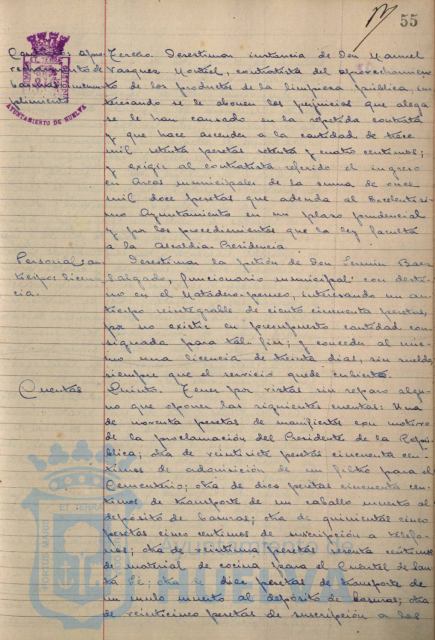 55
Tercero. Desestimar instancia de Don Manuel
Vazquez, contratista del aprovechamien-
to de los productos de la limpieza pública, in-
teresando se le abonen los perjuicios que alega
se le han causado en la repetida contrata
y que hace ascender a la cantidad de trece
mil setenta pesetas setenta y cuatro centimos;
y exigir al contratista referido el ingreso
en Arcas municipales de la suma de once
mil doce pesetas que adeuda al Excelentisi-
mo Ayuntamiento en un plazo prudencial
y por los procedimientos que la ley faculta
a la Alcaldia Presidencia.
AYUNTAMIENTO DE HUELVA
Personal; an-
ticipo; licen-
cia.
Desestimar la petición de Don Fermin Baez
Salgado, funcionario municipal con desti-
no en el Matadero, interesando un an-
ticipo reintegrable de ciento cincuenta pesetas,
por no existir en presupuesto cantidad con-
signada para tal fin; y conceder al mis-
mo una licencia de treinta dias, sin sueldo,
siempre que el servicio quede cubierto.
Cuentas
Quinto. Tener por vistas sin reparo algu-
no que oponer las siguientes cuentas: Una
de noventa pesetas de manifiestos con motivo
de la proclamación del Presidente de la Repú-
blica; otra de veintisiete pesetas cincuenta cen-
timos de adquisición de un filtro para el
Cementerio; otra de diez pesetas cincuenta cen-
timos de transporte de un caballo muerto al
depósito de basuras; otra de quinientas cinco
pesetas cinco centimos de suscripción a telefo-
nos; otra de veintiuna pesetas sesenta centimos
de material de cocina para el Cuartel de San-
ta Fé; otra de diez pesetas de transporte de
un mulo muerto al depósito de basuras; otra
de veinticinco pesetas de suscripción a los